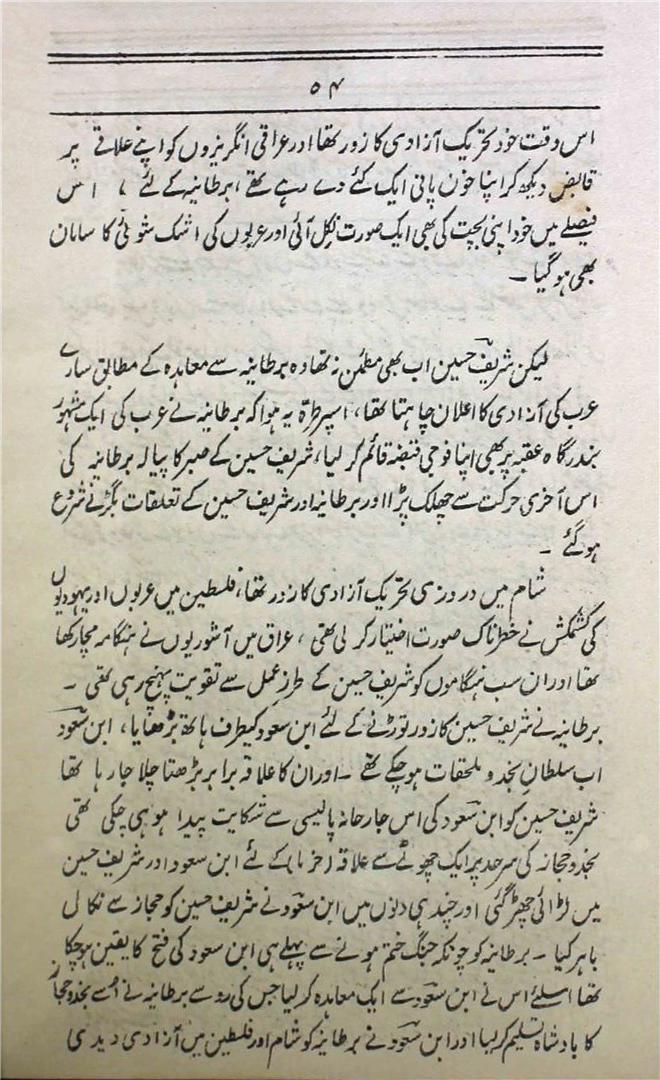 ۵۴
اس وقت خود تحریک آزادی کا زور تھا اور عراقی انگریزوں کو اپنے علاقے پر
قابض دیکھ کر اپنا خون پانی ایک کئے دے رہے تھے، برطانیہ کے لئے، اس
فیصلے میں خود اپنی بچت کی بھی ایک صورت نکل آئی اور عربوں کی اشک شوئی کا سامان
بھی ہوگیا ۔
لیکن شریف حسین اب بھی مطمئن نہ تھا وہ برطانیہ سے معاہدہ کے مطابق سارے
عرب کی آزادی کا اعلان چاہتا تھا، اسپر طرّہ یہ ہوا کہ برطانیہ نے عرب کی ایک مشہور
بندرگاہ عقبہ پر بھی اپنا فوجی قبضہ قائم کر لیا، شریف حسین کے صبر کا پیالہ برطانیہ کی
اس آخری حرکت سے چھلک پڑا اور برطانیہ اور شریف حسین کے تعلقات بگڑنے شروع
ہوگئے ۔
شام میں دروزی تحریک آزادی کا زور تھا، فلسطین میں عربوں اور یہودیوں
کی کشمکش نے خطرناک صورت اختیار کر لی تھی، عراق میں آشوریوں نے ہنگامہ مچا رکھا
تھا اور ان سب ہنگاموں کو شریف حسین کے طرزِ عمل سے تقویت پہنچ رہی تھی ۔
برطانیہ نے شریف حسین کا زور توڑنے کے لئے ابن سعود کیطرف ہاتھ بڑھایا، ابن سعود
اب سلطان نجد و ملحقات ہوچکے تھے ۔ اور ان کا علاقہ برابر بڑھتا چلا جا رہا تھا
شریف حسین کو ابن سعود کی اس جارحانہ پالیسی سے شکایت پیدا ہو ہی چکی تھی
نجد و حجاز کی سرحد پر ایک چھوٹے سے علاقہ (خرما) کے لئے ابن سعود اور شریف حسین
میں لڑائی چھڑ گئی اور چند ہی دنوں میں ابن سعود نے شریف حسین کو حجاز سے نکال
باہر کیا ۔ برطانیہ کو چونکہ جنگ ختم ہونے سے پہلے ہی ابن سعود کی فتح کا یقین ہوچکا
تھا اسلئے اس نے ابن سعود سے ایک معاہدہ کر لیا جس کی رو سے برطانیہ نے اُسے نجد و حجاز
کا بادشاہ تسلیم کر لیا اور ابن سعود نے برطانیہ کو شام اور فلسطین میں آزادی دیدی